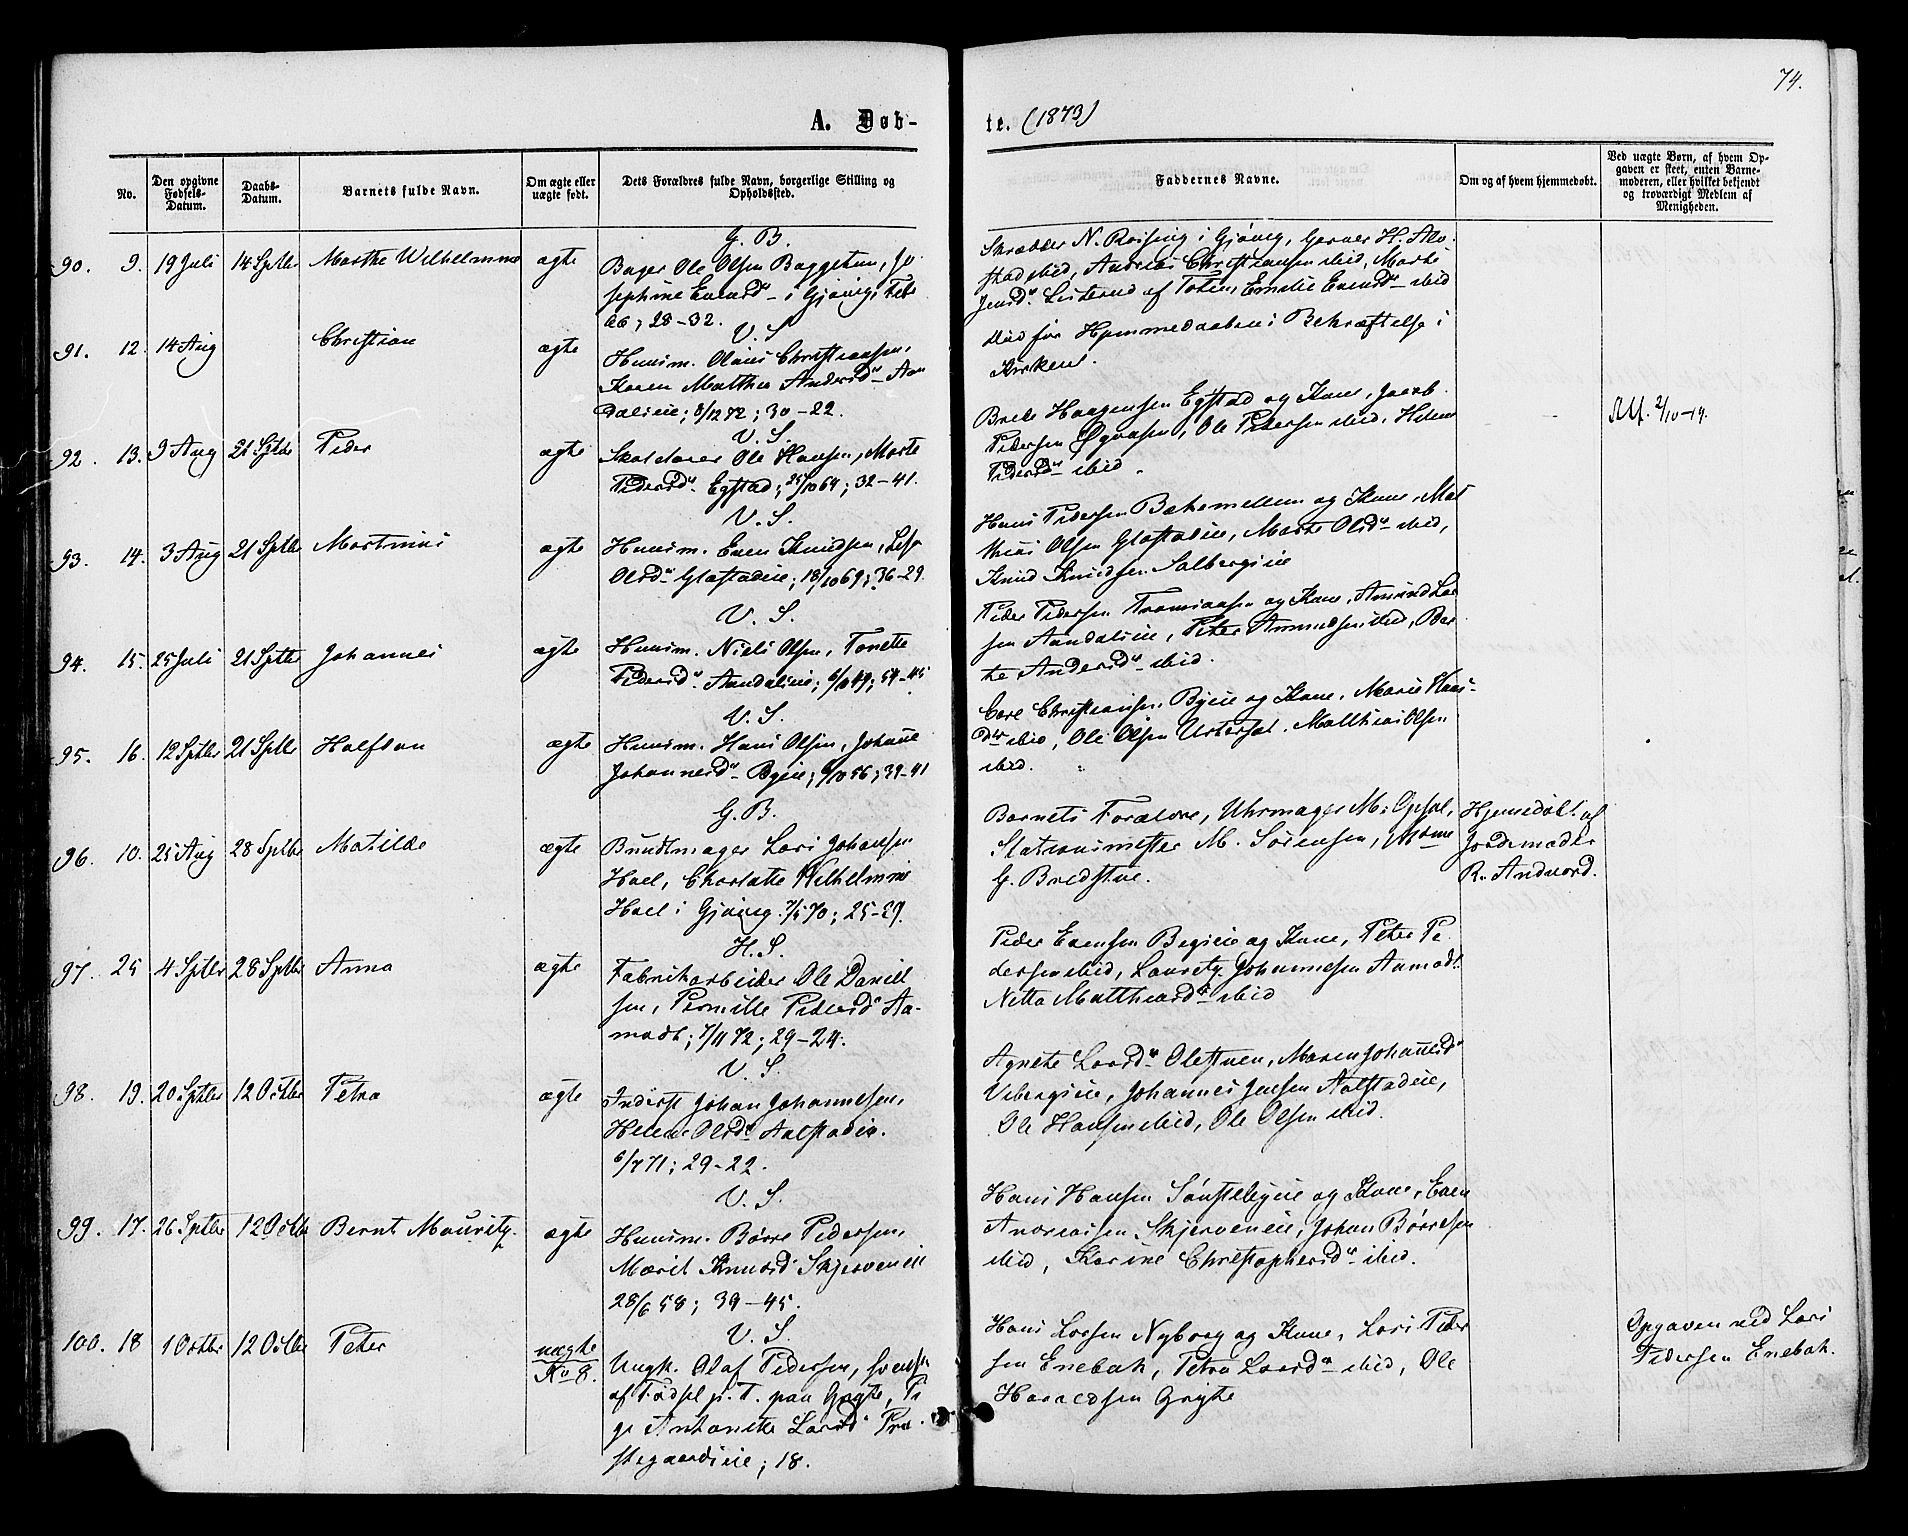 74.
A. Døb-
te. (1873)
No.
Den opgivne Fødsels-Datum.
Daabs-Datum.
Barnets fulde Navn.
Om ægte eller uægte født.
Dets Forældres fulde Navn, borgerlige Stilling og Opholdssted.
Faddernes Navne.
Om og af hvem hjemmedøbt.
Ved uægte Børn, af hvem Op-
gaven er skeet, enten Barne-
moderen, eller hvilket bekjendt
og troværdigt Medlem af
Menigheden.
90. 9. 19 Juli 14 Sptbr Marthe Wilhelmine ægte
G. B.
Bager Ole Olsen Baggetun, Jo-
sephine Evensd i Gjøvig,
66; 28-32.
Skrædder N. Roising i Gjøvig, Garver H. Alv-
stad ibid, Andreas Christiansen ibid, Marte
Jensd. af Toten, Emelie Evensd ibid
91. 12. 14 Aug Christian ægte
V. S.
Huusm. Olaus Christiansen,
Karen Mathea Andersd Aan
dalseie; 8/12 72; 30-22.
Død før Hjemmedaabens Bekræftelse i
Kirken.
92. 13. 9 Aug 21 Sptbr Peder ægte
V. S.
Skolelærer Ole Hansen, Marte
Pedersd. Egstad; 25/10 64; 32-41.
Brede Haagensen Egstad og Kone, Jacob
Pedersen Ole Pedersen ibid, Helene
Pedersd ibid.
Alf. 2/10-19.
93. 14. 3 Aug 21 Sptbr Martinus ægte
V. S.
Huusm. Even Knudsen, Lise
Olsd Glæstadeie; 18/10 69; 36-29.
Hans Pedersen Bakemellum og Kone, Mat
thias Olsen Glæstadeie, Marte Olsd ibid,
Knud Knudsen Solbergeie
94. 15. 25 Juli 21 Sptbr Johannes ægte
V. S.
Huusm. Niels Olsen, Tonette
Pedersd. Aandalseie; 6/10 49; 54-45
Peder Pedersen og Kone, Amund Lar
sen Aandalseie, Peter Amundsen ibid, Ber
the Andersd ibid.
95. 16. 12 Sptbr 21 Sptbr Halfdan ægte
V. S.
Huusm. Hans Olsen, Johane
Johannesd Byeie; 6/10 56; 39-41
Carl Christiansen Byeie og Kone, Marie Hans-
dtr ibid, Ole Olsen Mathias Olsen
ibid.
96. 10. 25 Aug 28 Sptbr Matilde ægte
G. B.
Bundtmager Lars Johansen
Hoel, Charlotte Wilhelmine
Hoel i Gjøvig. 7/5 70; 25-29.
Barnets Forældre, Uhrmager M. Opsal,
Stationsmester M. Sørensen, Mdme
G. Bredstue.
Hjemedøbt af
Jordemoder
R. Andvord.
97. 25 4 Sptbr 28 Sptbr Anna ægte
H. S.
Fabrikarbeider Ole Daniel
sen, Pernille Pedersd Aa-
modt; 7/11 72; 29-24.
Peder Evensen Begieie og Kone, Peter Pe-
dersen ibid, Lauretz Johannesen Aamodt
Netta Matthiasd ibid
98. 19. 20 Sptbr 12 Octbr Petra ægte
V. S.
Inderst Johan Johannesen,
Helene Olsd Aalstadeie.
6/7 71; 29-22.
Agnete Larsd Olestuen, Maren Johansd
Vebergeie, Johannes Jensen Aalstadeie,
Ole Hansen ibid, Ole Olsen ibid.
99. 17. 26 Sptbr 12 Octbr Bernt Mauritz ægte
V. S.
Huusm. Børre Pedersen,
Marit Knudsd Skjerveneie
28/6 58; 39-45.
Hans Hansen Sønstebyeie og Kone, Even
Andreasen Skjerveneie, Johan Børresen
ibid, Karine Christophersd ibid.
100. 18 1 Octbr 12 Octbr Peter uægte
No 8.
V. S.
Ungk. Olaf Pedersen, svensk
af Fødsel p. T. paa Grytte, Pi
ge Antonette Larsd Præ
stegaardseie; 18.
Hans Larsen Nyborg og Kone, Lars Peder
sen Enebak, Petra Larsd ibid, Ole
Haraldsen Grytte
Opgaven ved Lars
Pedersen Enebak.